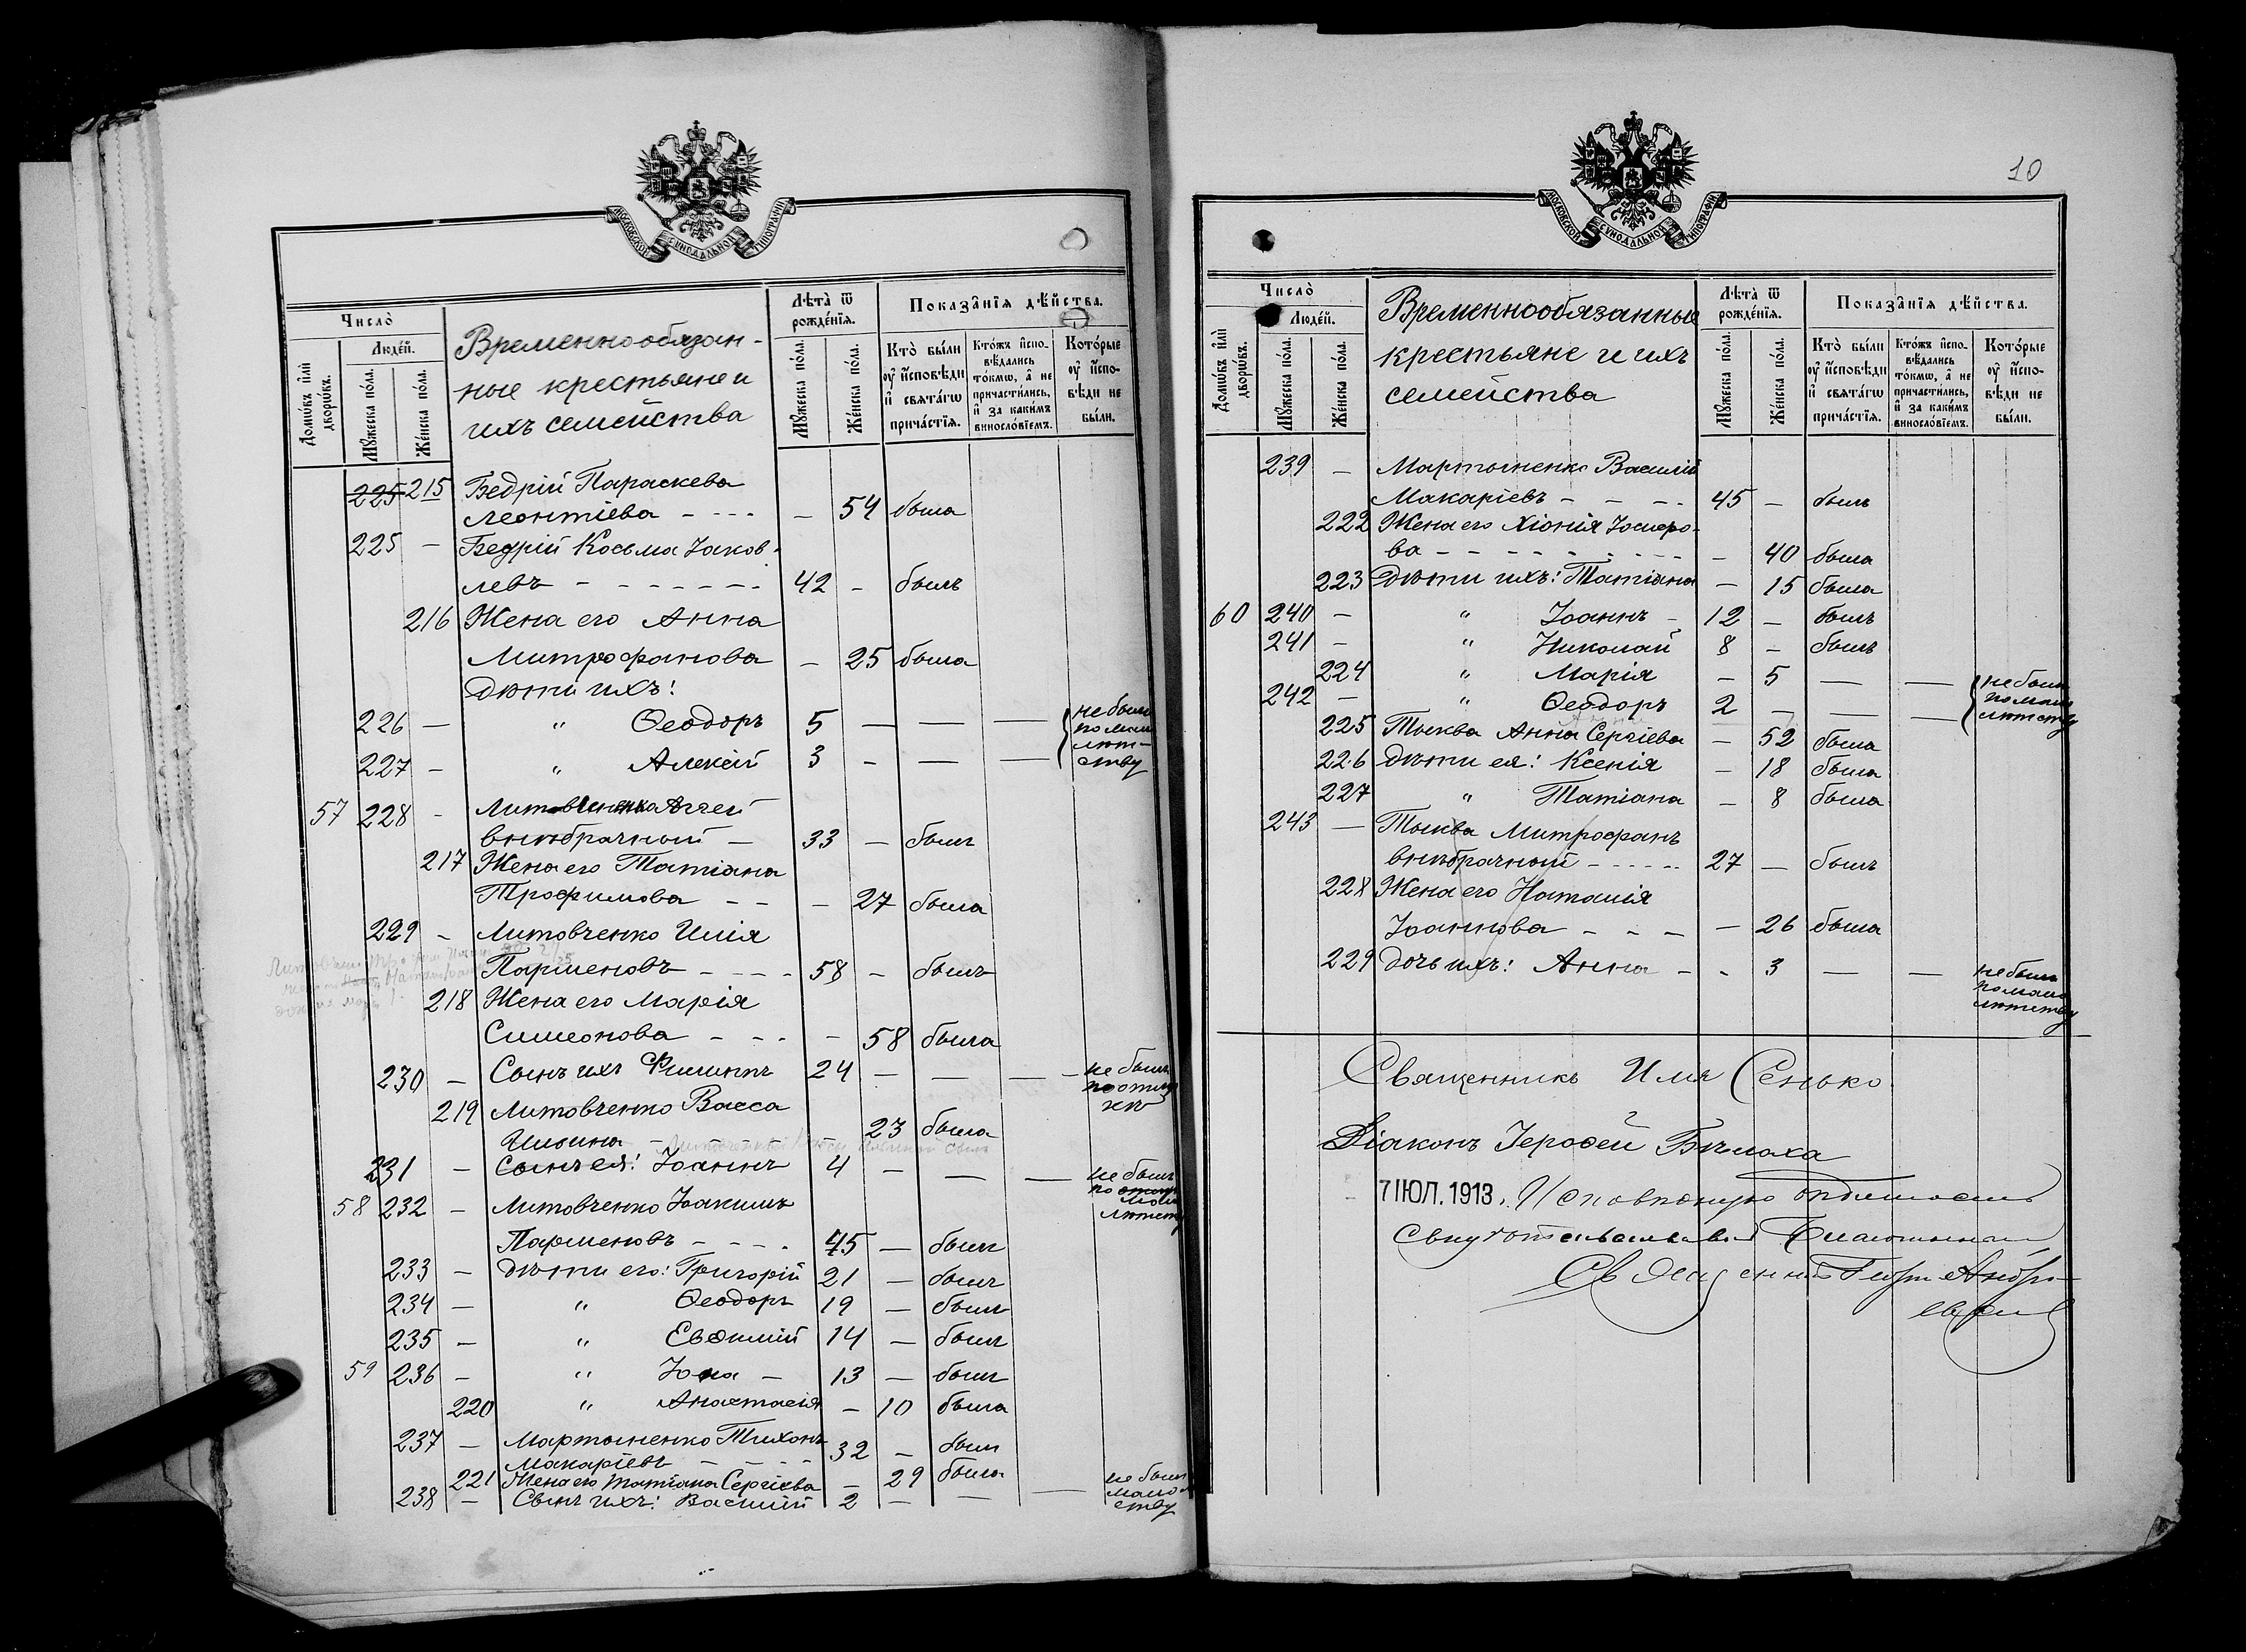 МОСКОВСКОЙ СѴНОДАЛЬНОЙ ТИПОГРАФІИ
Число̀
Домѡ́въ и҆лѝ дворѡ́въ.
Люде́й.
Мꙋ́жеска по́ла.
Же́нска по́ла.
Временнообязан-
ные крестьяне и
ихъ семейства
Лѣ́та ѿ рожде́нїѧ.
Мꙋ́жеска по́ла.
Же́нска по́ла.
Показа̑нїѧ дѣ́йства.
Кто̀ бы́ли ᲂу҆ и҆́сповѣди и҆ свѧта́гѡ прича́стїѧ.
Кто́жъ и҆спо-вѣ́дались то́кмѡ, а҆ не причасти́лись, и҆ за каки́мъ винословїемъ.
Кото́рые ᲂу҆ и҆́спо-вѣди не бы́ли.
225 215 Бедрій Параскева
Леонтіева - - - - 54 была
225 - Бедрій Косьма Іаков-
левъ - - - - - - 42 - былъ
216 Жена его Анна
Митрофанова - 25 была
Дѣти ихъ:
226 - " Ѳеодоръ 5 — — — не были
по мало
227 - " Алексій 3 - — — лѣт-
ству
57 228 -
внѣбрачный - 33 - былъ
217 Жена его Татіана
Трофимова - - - 27 была
229 - Литовченко Илія
Парменовъ - - - - 58 - былъ
218 Жена его Марія
Симеонова - - - - 58 была
230 - Сынъ ихъ Филиппъ 24 — — — не былъ
219 Литовченко Васса
Ильина - - - - - 23 была
231 - Сынъ ея: Іоаннъ 4 — — — не былъ
по мало
лѣтству
58 232 - Литовченко Іоакимъ
Парменовъ - - - - 45 - былъ
233 - Дѣти его: Григорій 21 - былъ
234 - " Ѳеодоръ 19 - былъ
235 - " Евѳимій 14 - былъ
59 236 - " Іона - 13 - былъ
220 " Анастасія - 10 была
237 - Мартыненко Тихонъ
Макаріевъ - - - - 32 - былъ
221 Жена его Татіана Сергіева - 29 была
238 - Сынъ ихъ: Василій 2 — — — не былъ
мало
ству
10
МОСКОВСКОЙ СѴНОДАЛЬНОЙ ТИПОГРАФІИ
Число̀
Домѡ́въ и҆лѝ дворѡ́въ.
Люде́й.
Мꙋ́жеска по́ла.
Же́нска по́ла.
Временнообязанные
крестьяне и ихъ
семейства
Лѣ́та ѿ рожде́нїѧ.
Мꙋ́жеска по́ла.
Же́нска по́ла.
Показа̑нїѧ дѣ́йства.
Кто̀ бы́ли ᲂу҆ и҆́сповѣди и҆ свѧта́гѡ прича́стїѧ.
Кто́жъ и҆спо-вѣ́дались то́кмѡ, а҆ не причасти́лись, и҆ за каки́мъ винословїемъ.
Кото́рые ᲂу҆ и҆́спо-вѣди не бы́ли.
239 - Мартыненко Василій
Макаріевъ - - - - 45 - былъ
222 Жена его Хіонія
ва - - - - - - - - 40 была
223 Дѣти ихъ: Татіана - 15 была
60 240 - " Іоаннъ - 12 - былъ
241 - " Николай 8 - былъ
224 " Марія - 5 — — не были
242 - " Ѳеодоръ 2 - — — по мало
лѣтству
225 Тыква Анна Сергіева - 52 была
226 Дѣти ея: Ксенія - 18 была
227 " Татіана - 8 была
243 - Тыква Митрофанъ
внѣбрачный - - - - - 27 - былъ
228 Жена его Наталія
Іоаннова - - - - 26 была
229 Дочь ихъ: Анна - - 3 — — не была
по мало
лѣтству
Священникъ Илія Сенько
Діаконъ Іероѳей Бѣлоха
7 ІЮЛ. 1913.